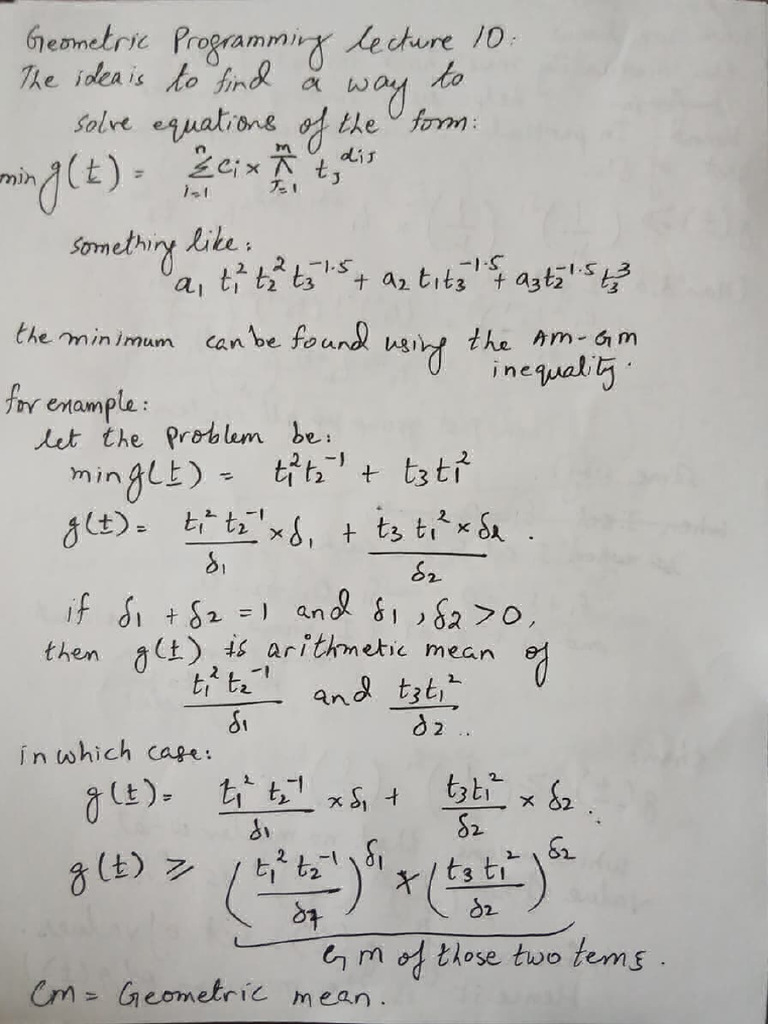 Geometric Programming lecture 10:
The idea is to find a way to
solve equations of the form:
min g(t) = n Σ i=1 ci × m π J=1 tj^dij
something like:
a1 t1^2 t2^2 t3^-1.5 + a2 t1 t3^-1.5 + a3 t2^-1.5 t3^3
the minimum can be found using the AM-GM
inequality.
for example:
let the problem be:
min g(t) = t1^2 t2^-1 + t3 t1^2
g(t) = t1^2 t2^-1 / δ1 × δ1 + t3 t1^2 × δ2 / δ2 .
if δ1 + δ2 = 1 and δ1, δ2 > 0,
then g(t) is arithmetic mean of
t1^2 t2^-1 / δ1 and t3 t1^2 / δ2 ..
in which case:
g(t) = t1^2 t2^-1 / δ1 × δ1 + t3 t1^2 / δ2 × δ2 .
g(t) ≥ (t1^2 t2^-1 / δ1)^δ1 × (t3 t1^2 / δ2)^δ2
Gm of those two tems.
Gm = Geometric mean.